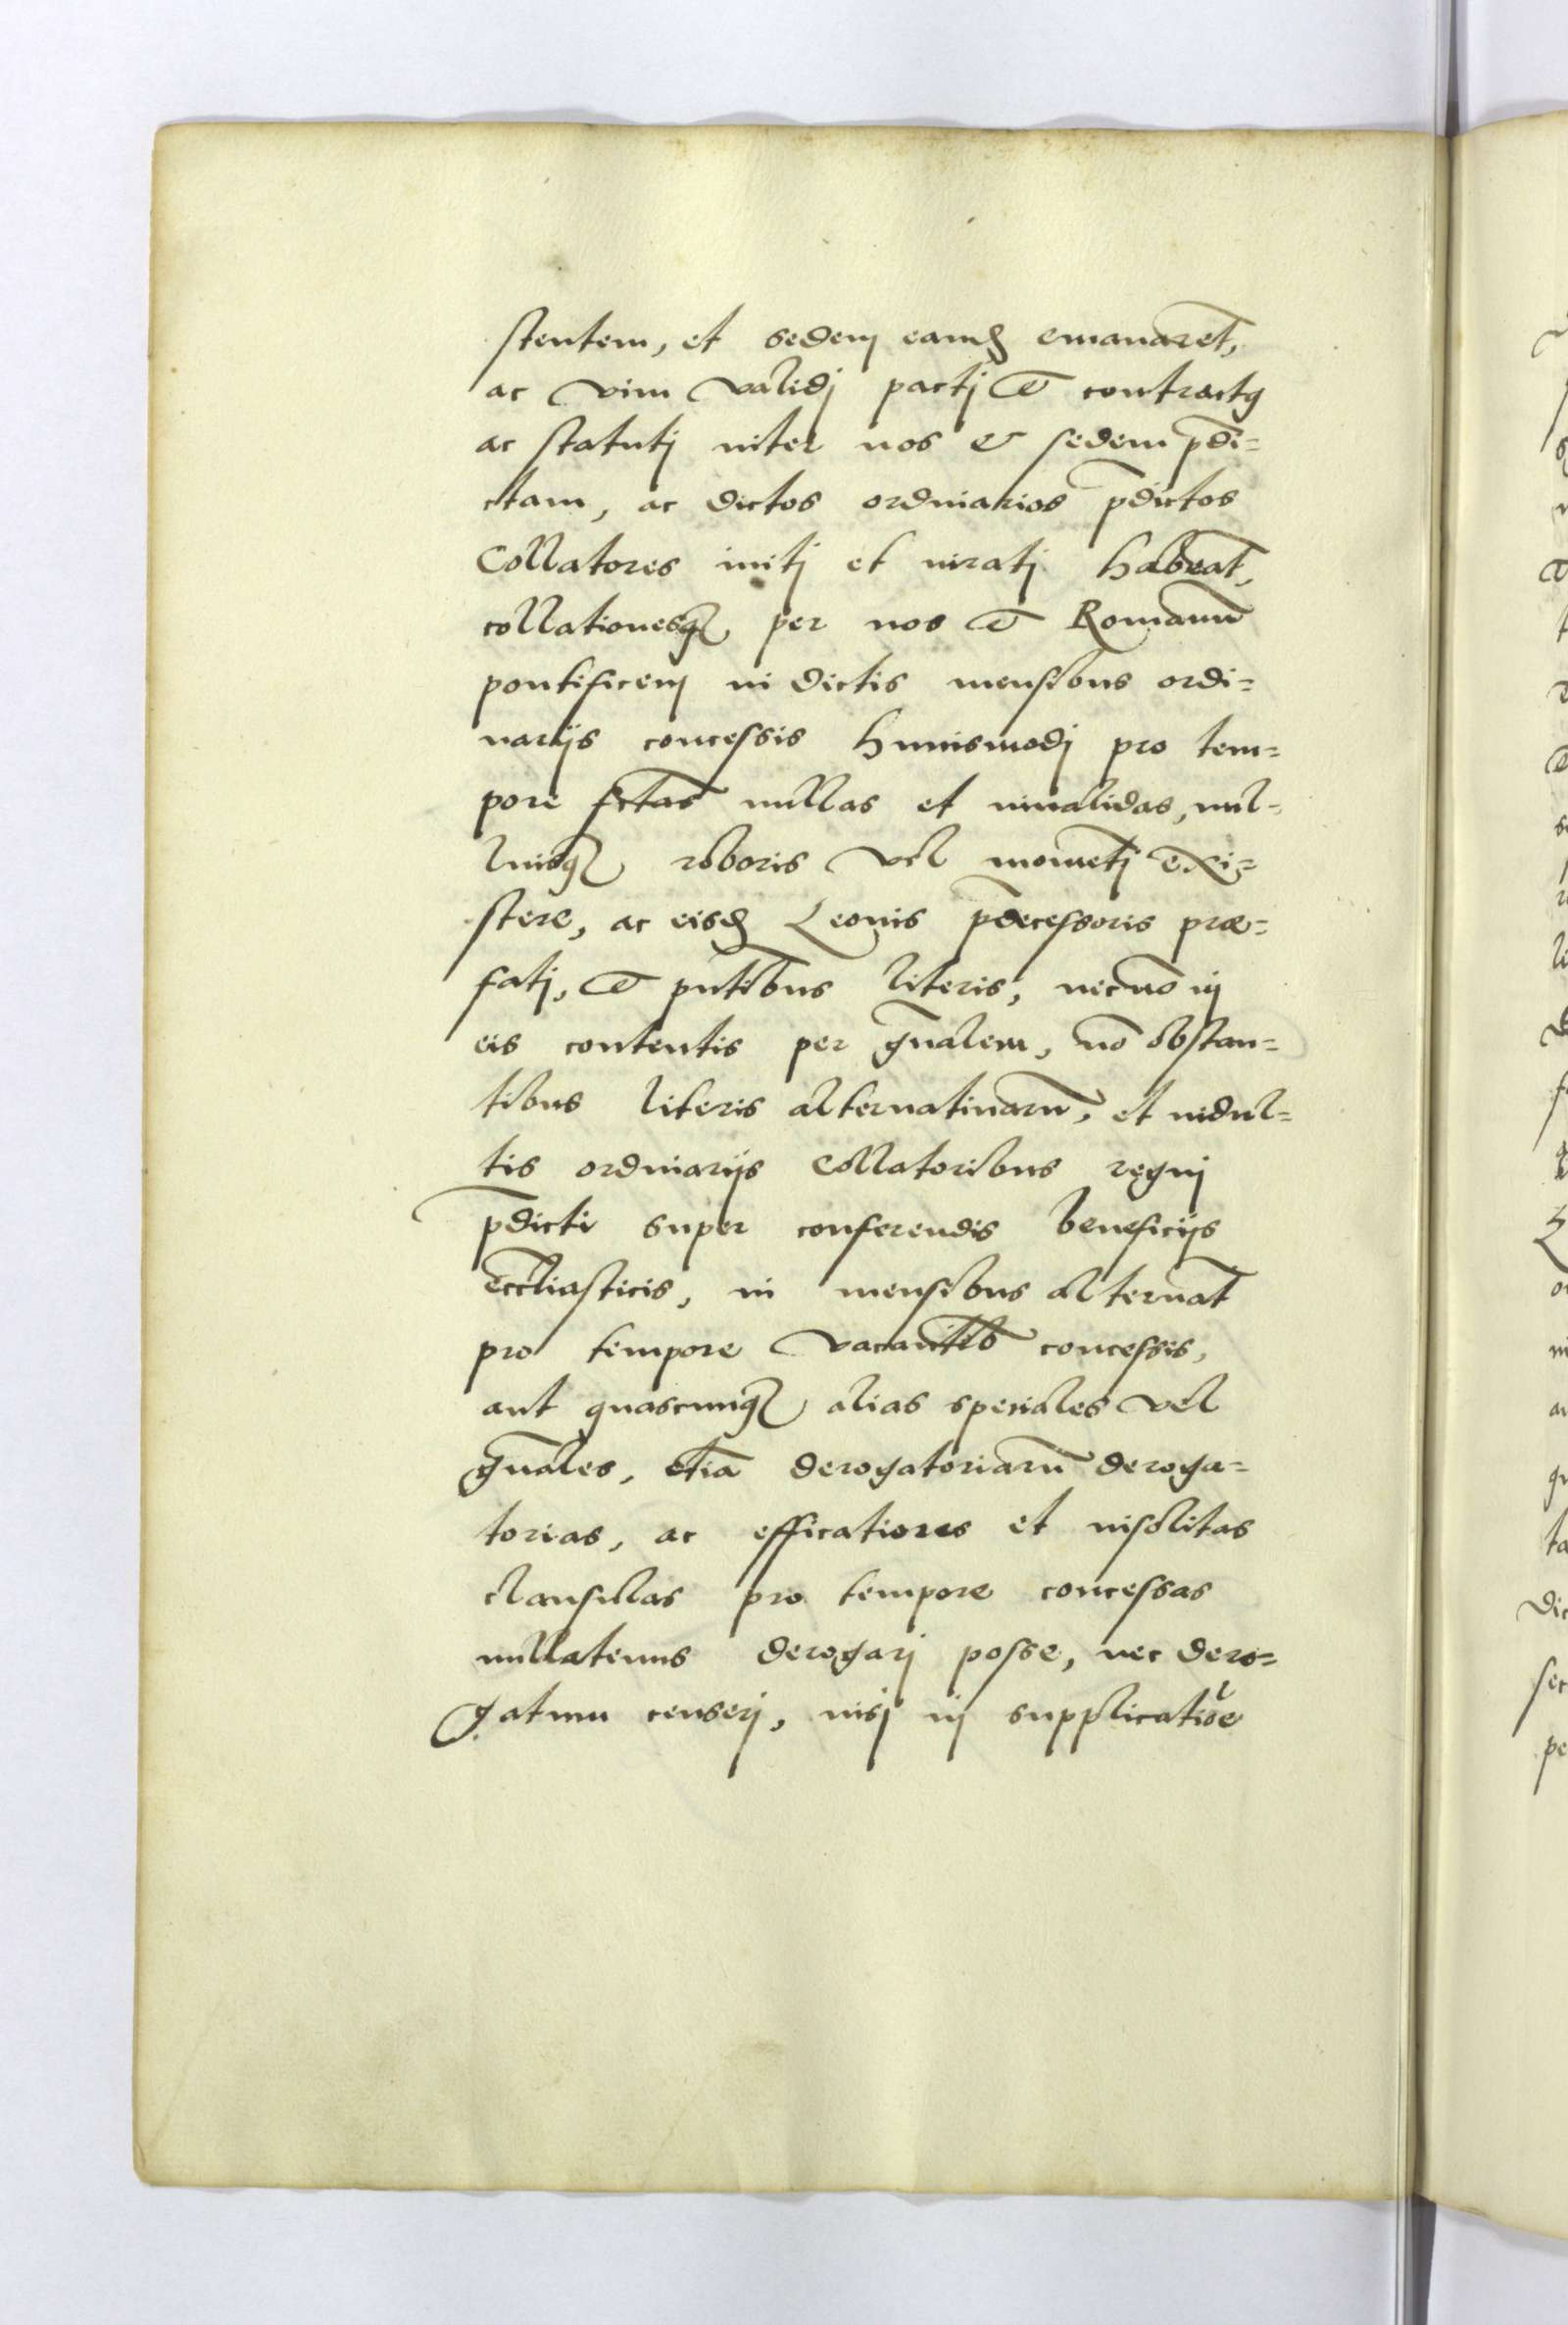 stentem, et sedem eamd emanaret,
ac vim validj pactj et contractus
ac statutj inter nos & sedem p̄di=
ctam, ac dictos ordinarios p̄dictos
Collatores initj et iuratj habeāt,
collationesq̃ per nos et Romanū
pontificem in dictis mensibus ordi=
narijs concessis huiusmodj pro tem=
pore fctas nullas et inualidas, nul=
liusq̃ roboris vel momētj exi=
stere, ac eisd Leonis p̄decessoris præ=
fatj, et pn̄tibus literis, necnō in
eis contentis per gn̄alem, nō obstan=
tibus literis alternatiuarū, et indul=
tis ordinarijs Collatoribus regnj
p̄dicti super conferendis beneficijs
eccl̄iasticis, in mensibus alternat̄
pro tempore vacantib̄ concessis,
aut quascunq̃ alias speciales vel
gn̄ales, etiā derogatoriarū deroga=
torias, ac efficatiores et insolitas
clausulas pro tempore concessas
nullatenus derogarj posse, nec dero=
gatum censerj, nisj in supplicatiōe